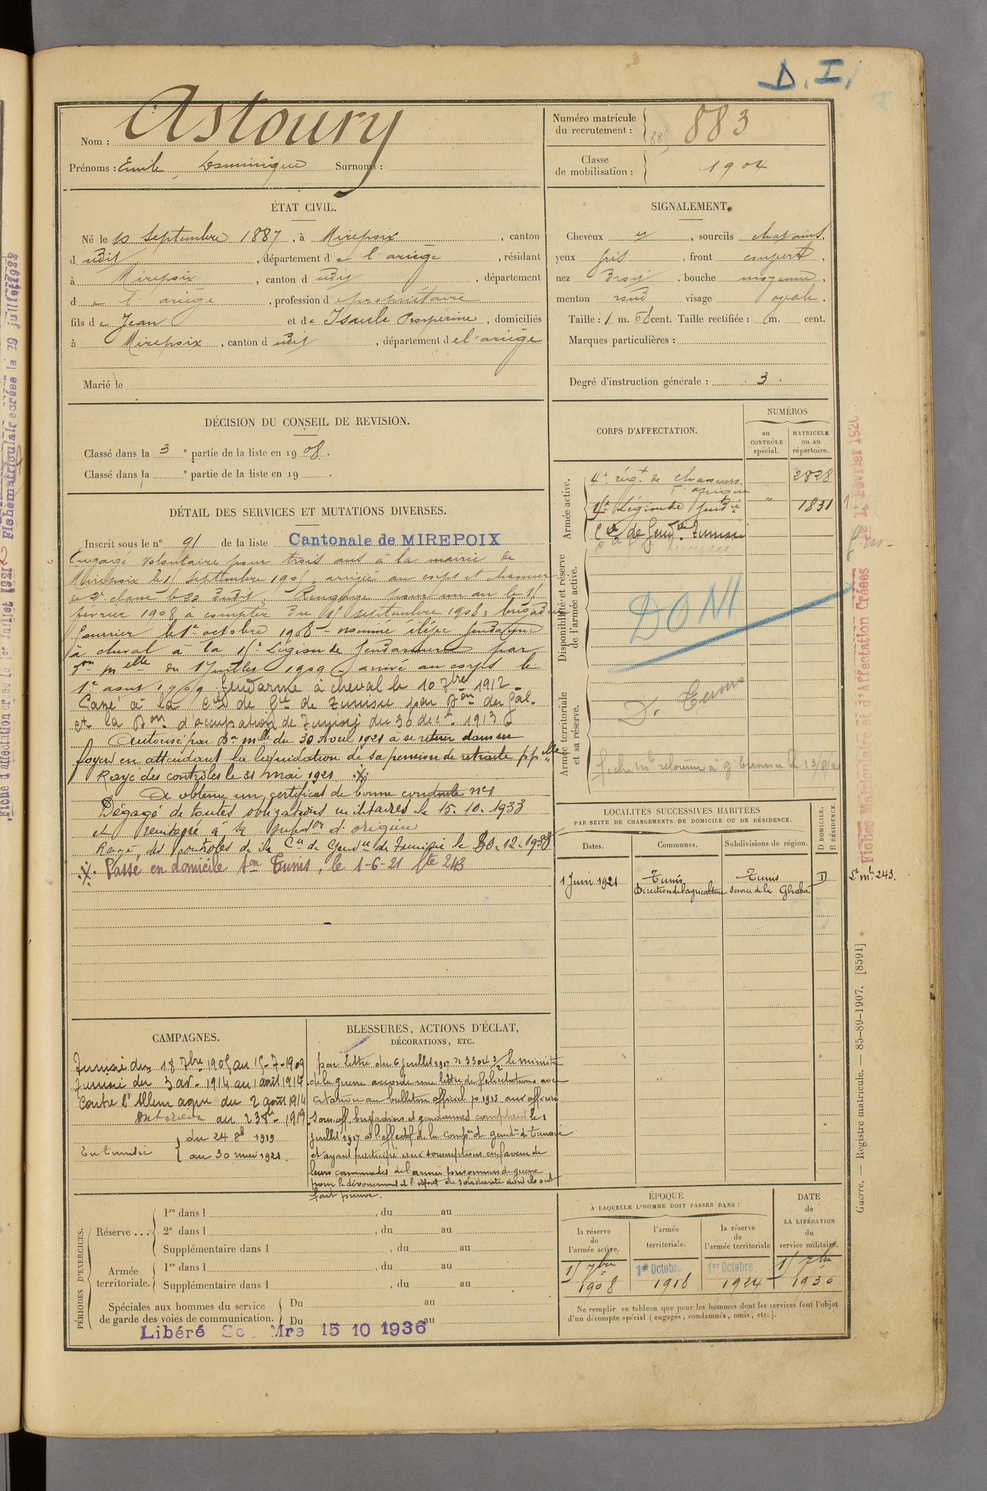 D. I.
Nom : Astoury
Prénoms : Emile Dominique Surnoms :
Numéro matricule du recrutement : 883
Classe de mobilisation : 1904
ÉTAT CIVIL.
Né le 10 Septembre 1887, à Mirepoix, canton
dudit, département de l'ariège, résidant
à Mirepoix, canton dudit, département
de l'ariège, profession de propriétaire
fils de Jean et de Isaule Prosperine, domiciliés
à Mirepoix, canton dudit, département de l'ariège
Marié le
SIGNALEMENT.
Cheveux et, sourcils chatains,
yeux gris, front couvert,
nez, bouche moyenne,
menton rond visage ovale.
Taille : 1 m. cent. Taille rectifiée : m. cent.
Marques particulières :
Degré d'instruction générale : 3.
DÉCISION DU CONSEIL DE REVISION.
Classé dans la 3e partie de la liste en 1908.
Classé dans la e partie de la liste en 19 .
DÉTAIL DES SERVICES ET MUTATIONS DIVERSES.
Inscrit sous le n° 91 de la liste Cantonale de MIREPOIX
Engagé volontaire pour trois ans à la mairie de
Mirepoix le septembre 1905, arrivé au corps et chasseur
de 2e classe le dudit. Rengagé pour un an le
février 1908 à compter du septembre 1908.
fourrier le 1er octobre 1908 - nommé élève gendarme
à cheval à la Légion de Gendarmerie par
on mlle du juillet 1909 arrivé au corps le
1er aout 1909. Gendarme à cheval le 10 7bre 1912 -
Passé à la Cie de Gie de Tunisie par Don du Gal.
et la Don d'occupation de Tunisie du 30 dec. 1913
Autorisé par Don mlle du 30 Avril 1921 à se retirer dans ses
foyers en attendant la liquidation de sa pension de retraite ppelle
Rayé des contrôles le 31 mai 1921.
A obtenu un certificat de bonne conduite no 1
Dégagé de toutes obligations militaires le 15.10.1933
et
Rayé des contrôles de la Cie de Gendie de Tunisie le 30.12.1938
Passé en domicile Son Tunis, le 1-6-21 Ste 243
CORPS D'AFFECTATION.
NUMÉROS
au CONTRÔLE spécial.
MATRICULE ou au répertoire.
Armée active.
4e régt de chasseurs d'afrique 2828
Légion de Gendie 1831
Cie de Gend. Tunisie
Disponibilité et réserve de l'armée active.
DOM
Armée territoriale et sa réserve.
D. Tunis
LOCALITÉS SUCCESSIVES HABITÉES
PAR SUITE DE CHANGEMENTS DE DOMICILE OU DE RÉSIDENCE.
Dates. Communes. Subdivisions de région. D DOMICILE. R RÉSIDENCE.
1 Juin 1921 Tunis Tunis D
Direction de l'agriculture Service de la Ghaba
St mle 243.
CAMPAGNES.
Tunisie du 18 7bre 1905 au 15-7-1909
Tunisie du 3 av. 1914 au 1 août 1914
Contre l'Allemagne du 2 août 1914
au 23 1919
En Tunisie du 24 1919
au 30 mai 1921.
BLESSURES, ACTIONS D'ÉCLAT,
DÉCORATIONS, ETC.
par lettre du 6 juillet 1917 n° 33043 le ministre
de la guerre accorde une lettre de félicitations avec
citation au bulletin officiel p. 1913 aux officiers
sous off. brigadiers et gendarmes comptant le 1
juillet 1917 à l'effectif de la comp. de gend. de Tunisie
et ayant participé aux souscriptions en faveur de
leurs camarades de l'armée prisonniers de guerre
pour le dévouement et l'esprit de solidarité dont ils ont
fait preuve.
PÉRIODES D'EXERCICES.
Réserve ...
1re dans l , du au
2e dans l , du au
Supplémentaire dans l , du au
Armée territoriale.
1re dans l , du au
Supplémentaire dans l , du au
Spéciales aux hommes du service de garde des voies de communication.
Du au
Du au
Libéré Se Mre 15 10 1936
ÉPOQUE
À LAQUELLE L'HOMME DOIT PASSER DANS :
la réserve de l'armée active.
l'armée territoriale.
la réserve de l'armée territoriale
DATE DE LA LIBÉRATION du service militaire.
7bre 1908
1er Octobre 1918
1er Octobre 1924
7bre 1930
Ne remplir ce tableau que pour les hommes dont les services font l'objet
d'un décompte spécial (engagés, condamnés, omis, etc.).
Guerre. — Registre matricule. — 85-89-1907. [8591]
Fiches Matricules et d'Affectation Créées le Février 1920
Fiche matriculaire créée le 29 juillet 1922